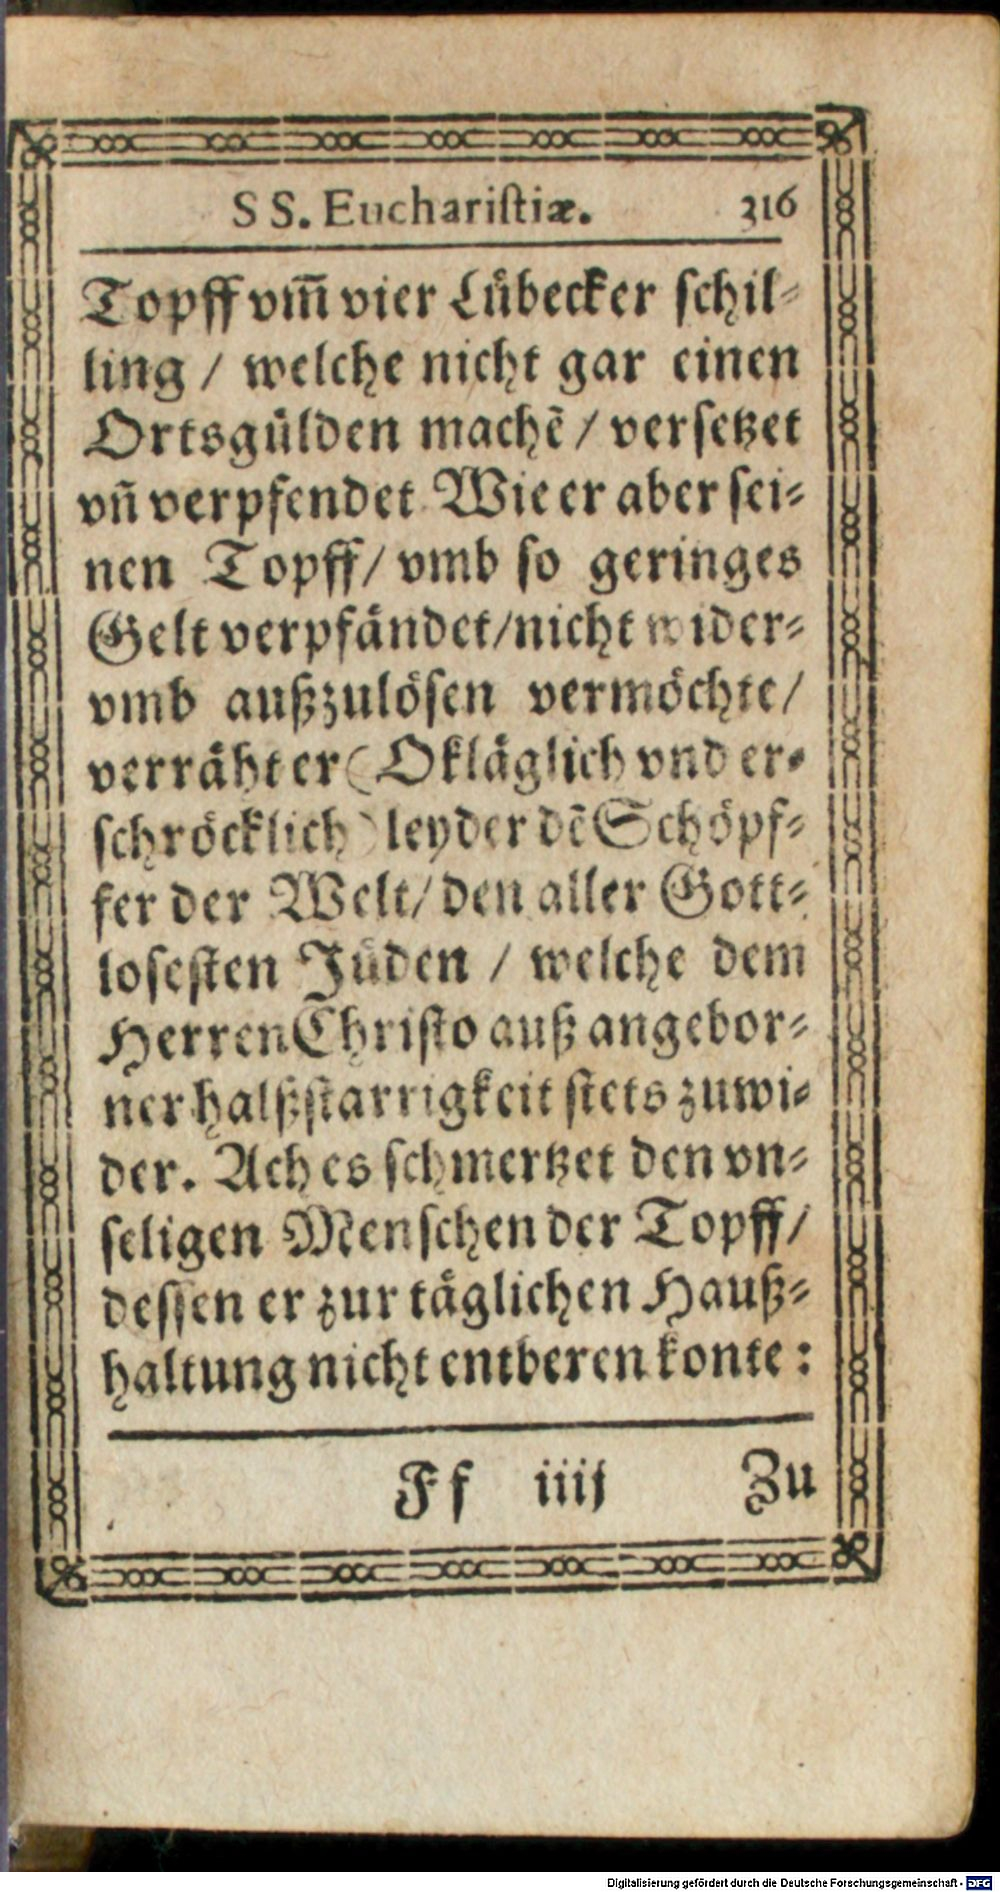 SS. Euchariſtiæ. 316
Topff vm̃ vier Lübecker ſchil-
ling / welche nicht gar einen
Ortsgülden machẽ / verſetzet
vñ verpfendet. Wie er aber ſei-
nen Topff / vmb ſo geringes
Gelt verpfändet / nicht wider-
vmb außzulöſen vermöchte /
verräht er (O kläglich vnd er-
ſchröcklich) leyder dẽ Schöpf-
fer der Welt / den aller Gott-
loſeſten Jüden / welche dem
Herren Chriſto auß angebor-
ner halßſtarrigkeit ſtets zuwi-
der. Ach es ſchmertzet den vn-
ſeligen Menſchen der Topff /
deſſen er zur täglichen Hauß-
haltung nicht entberen konte :
Ff iiij Zu
Digitalisierung gefördert durch die Deutsche Forschungsgemeinschaft - DFG